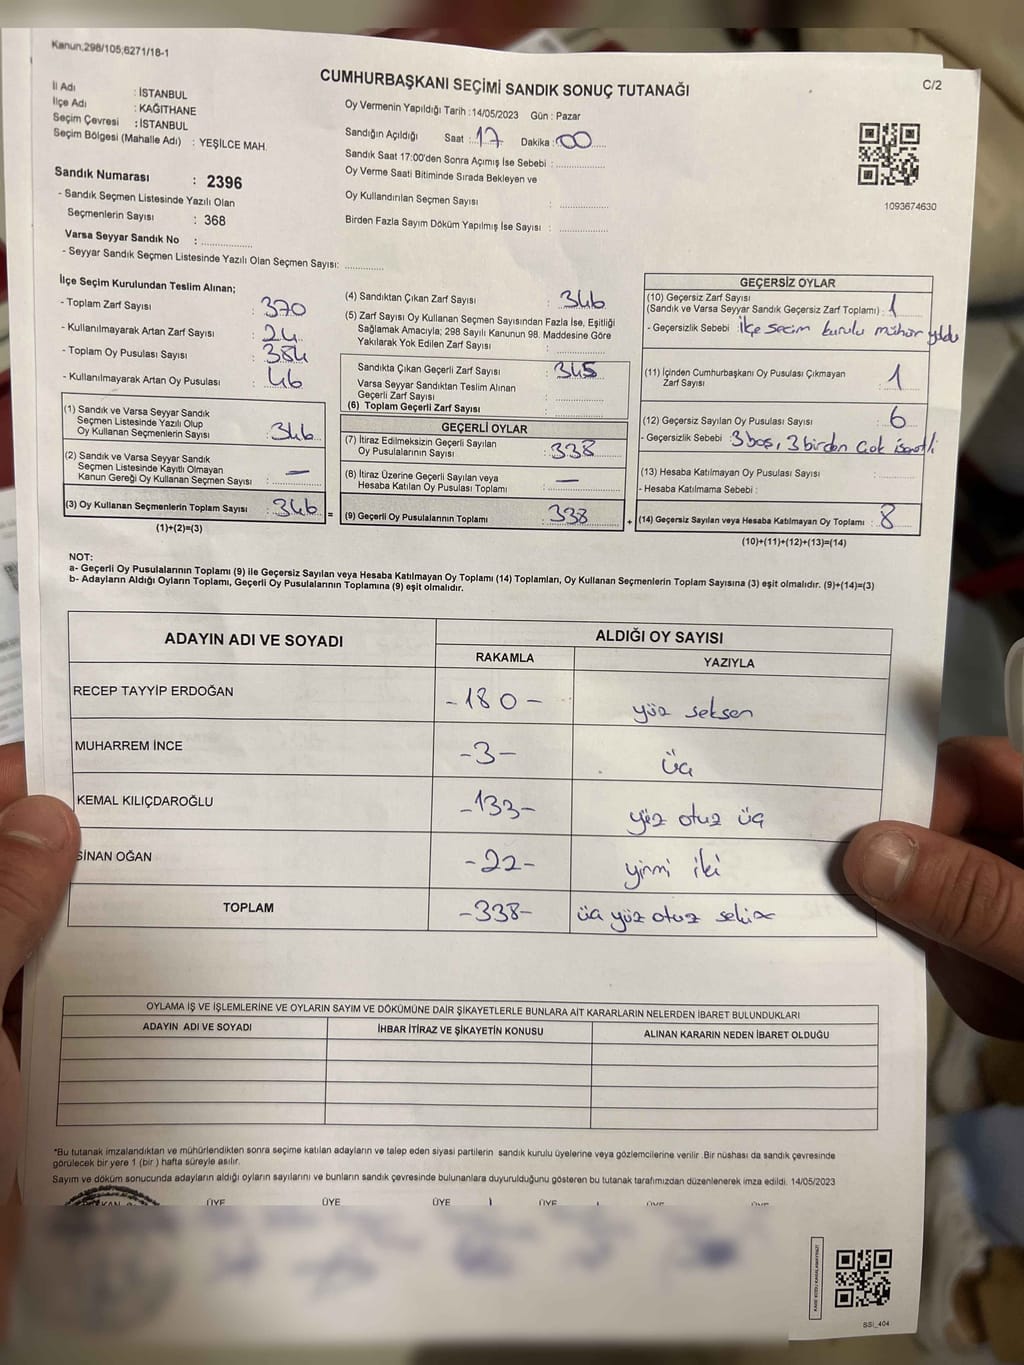 Kanun;298/105;6271/18-1
CUMHURBAŞKANI SEÇİMİ SANDIK SONUÇ TUTANAĞI
C/2
İl Adı : İSTANBUL
İlçe Adı : KAĞITHANE
Seçim Çevresi : İSTANBUL
Seçim Bölgesi (Mahalle Adı) : YEŞİLCE MAH.
Sandık Numarası : 2396
- Sandık Seçmen Listesinde Yazılı Olan
Seçmenlerin Sayısı : 368
Varsa Seyyar Sandık No : ..............
- Seyyar Sandık Seçmen Listesinde Yazılı Olan Seçmen Sayısı: ............
Oy Vermenin Yapıldığı Tarih :14/05/2023 Gün : Pazar
Sandığın Açıldığı Saat : 17 Dakika : 00
Sandık Saat 17:00'den Sonra Açımış İse Sebebi : ..............
Oy Verme Saati Bitiminde Sırada Bekleyen ve
Oy Kullandırılan Seçmen Sayısı : ..............
Birden Fazla Sayım Döküm Yapılmış İse Sayısı : ..............
1093674630
İlçe Seçim Kurulundan Teslim Alınan;
- Toplam Zarf Sayısı : 370
- Kullanılmayarak Artan Zarf Sayısı : 24
- Toplam Oy Pusulası Sayısı : 384
- Kullanılmayarak Artan Oy Pusulası : 46
(1) Sandık ve Varsa Seyyar Sandık
Seçmen Listesinde Yazılı Olup
Oy Kullanan Seçmenlerin Sayısı : 346
(2) Sandık ve Varsa Seyyar Sandık
Seçmen Listesinde Kayıtlı Olmayan
Kanun Gereği Oy Kullanan Seçmen Sayısı : —
(3) Oy Kullanan Seçmenlerin Toplam Sayısı : 346
(1)+(2)=(3)
=
(4) Sandıktan Çıkan Zarf Sayısı : 346
(5) Zarf Sayısı Oy Kullanan Seçmen Sayısından Fazla İse, Eşitliği
Sağlamak Amacıyla; 298 Sayılı Kanunun 98. Maddesine Göre
Yakılarak Yok Edilen Zarf Sayısı : ..............
Sandıkta Çıkan Geçerli Zarf Sayısı : 345
Varsa Seyyar Sandıktan Teslim Alınan
Geçerli Zarf Sayısı : ..............
(6) Toplam Geçerli Zarf Sayısı : ..............
GEÇERLİ OYLAR
(7) İtiraz Edilmeksizin Geçerli Sayılan
Oy Pusulalarının Sayısı : 338
(8) İtiraz Üzerine Geçerli Sayılan veya
Hesaba Katılan Oy Pusulası Toplamı : —
(9) Geçerli Oy Pusulalarının Toplamı : 338
+
GEÇERSİZ OYLAR
(10) Geçersiz Zarf Sayısı
(Sandık ve Varsa Seyyar Sandık Geçersiz Zarf Toplamı) : 1
- Geçersizlik Sebebi : İlçe secim kurulu mühür yoktu
(11) İçinden Cumhurbaşkanı Oy Pusulası Çıkmayan
Zarf Sayısı : 1
(12) Geçersiz Sayılan Oy Pusulası Sayısı : 6
- Geçersizlik Sebebi : 3 boş, 3 birden çok işaretli
(13) Hesaba Katılmayan Oy Pusulası Sayısı : ..............
- Hesaba Katılmama Sebebi :
(14) Geçersiz Sayılan veya Hesaba Katılmayan Oy Toplamı : 8
(10)+(11)+(12)+(13)=(14)
NOT:
a- Geçerli Oy Pusulalarının Toplamı (9) ile Geçersiz Sayılan veya Hesaba Katılmayan Oy Toplamı (14) Toplamları, Oy Kullanan Seçmenlerin Toplam Sayısına (3) eşit olmalıdır. (9)+(14)=(3)
b- Adayların Aldığı Oyların Toplamı, Geçerli Oy Pusulalarının Toplamına (9) eşit olmalıdır.
ADAYIN ADI VE SOYADI ALDIĞI OY SAYISI
RAKAMLA YAZIYLA
RECEP TAYYİP ERDOĞAN -180- yüz seksen
MUHARREM İNCE -3- üç
KEMAL KILIÇDAROĞLU -133- yüz otuz üç
SİNAN OĞAN -22- yirmi iki
TOPLAM -338- üç yüz otuz sekiz
OYLAMA İŞ VE İŞLEMLERİNE VE OYLARIN SAYIM VE DÖKÜMÜNE DAİR ŞİKAYETLERLE BUNLARA AİT KARARLARIN NELERDEN İBARET BULUNDUKLARI
ADAYIN ADI VE SOYADI İHBAR İTİRAZ VE ŞİKAYETİN KONUSU ALINAN KARARIN NEDEN İBARET OLDUĞU
*Bu tutanak imzalandıktan ve mühürlendikten sonra seçime katılan adayların ve talep eden siyasi partilerin sandık kurulu üyelerine veya gözlemcilerine verilir .Bir nüshası da sandık çevresinde
görülecek bir yere 1 (bir ) hafta süreyle asılır.
Sayım ve döküm sonucunda adayların aldığı oyların sayılarını ve bunların sandık çevresinde bulunanlara duyurulduğunu gösteren bu tutanak tarafımızdan düzenlenerek imza edildi. 14/05/2023
ÜYE ÜYE ÜYE ÜYE ÜYE ÜYE
SSI_404